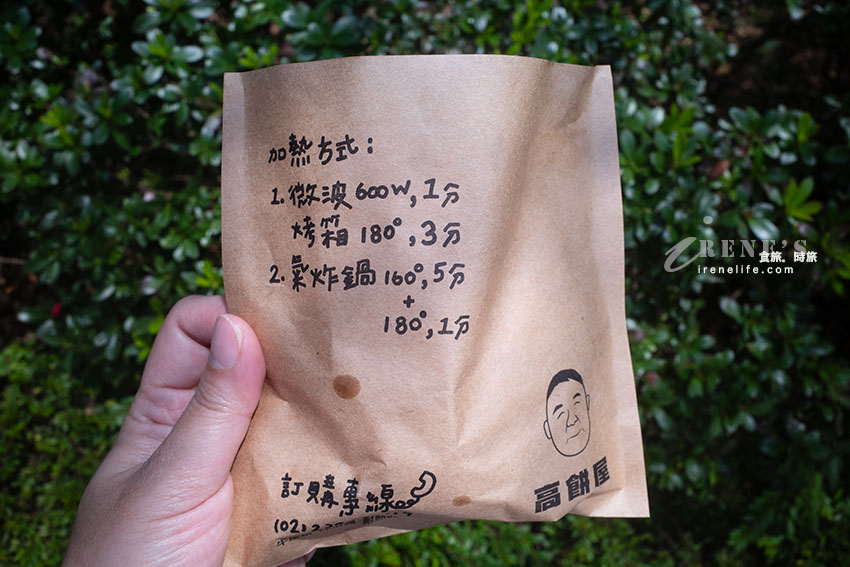 加熱方式：
1. 微波 600W, 1分
烤箱 180°, 3分
2. 氣炸鍋 160°, 5分
+
180°, 1分
訂購專線
(02)
高餅屋
iRENE'S
食旅。時旅
irenelife.com